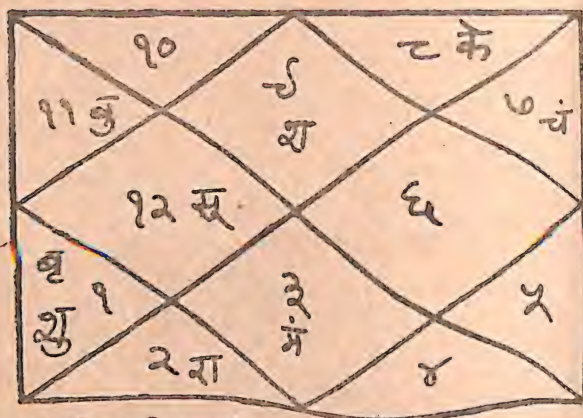 १०
८ के
९
श
११ बु
७ चं
१२ सू
६
बृ
शु १
३
मं
५
२ रा
४